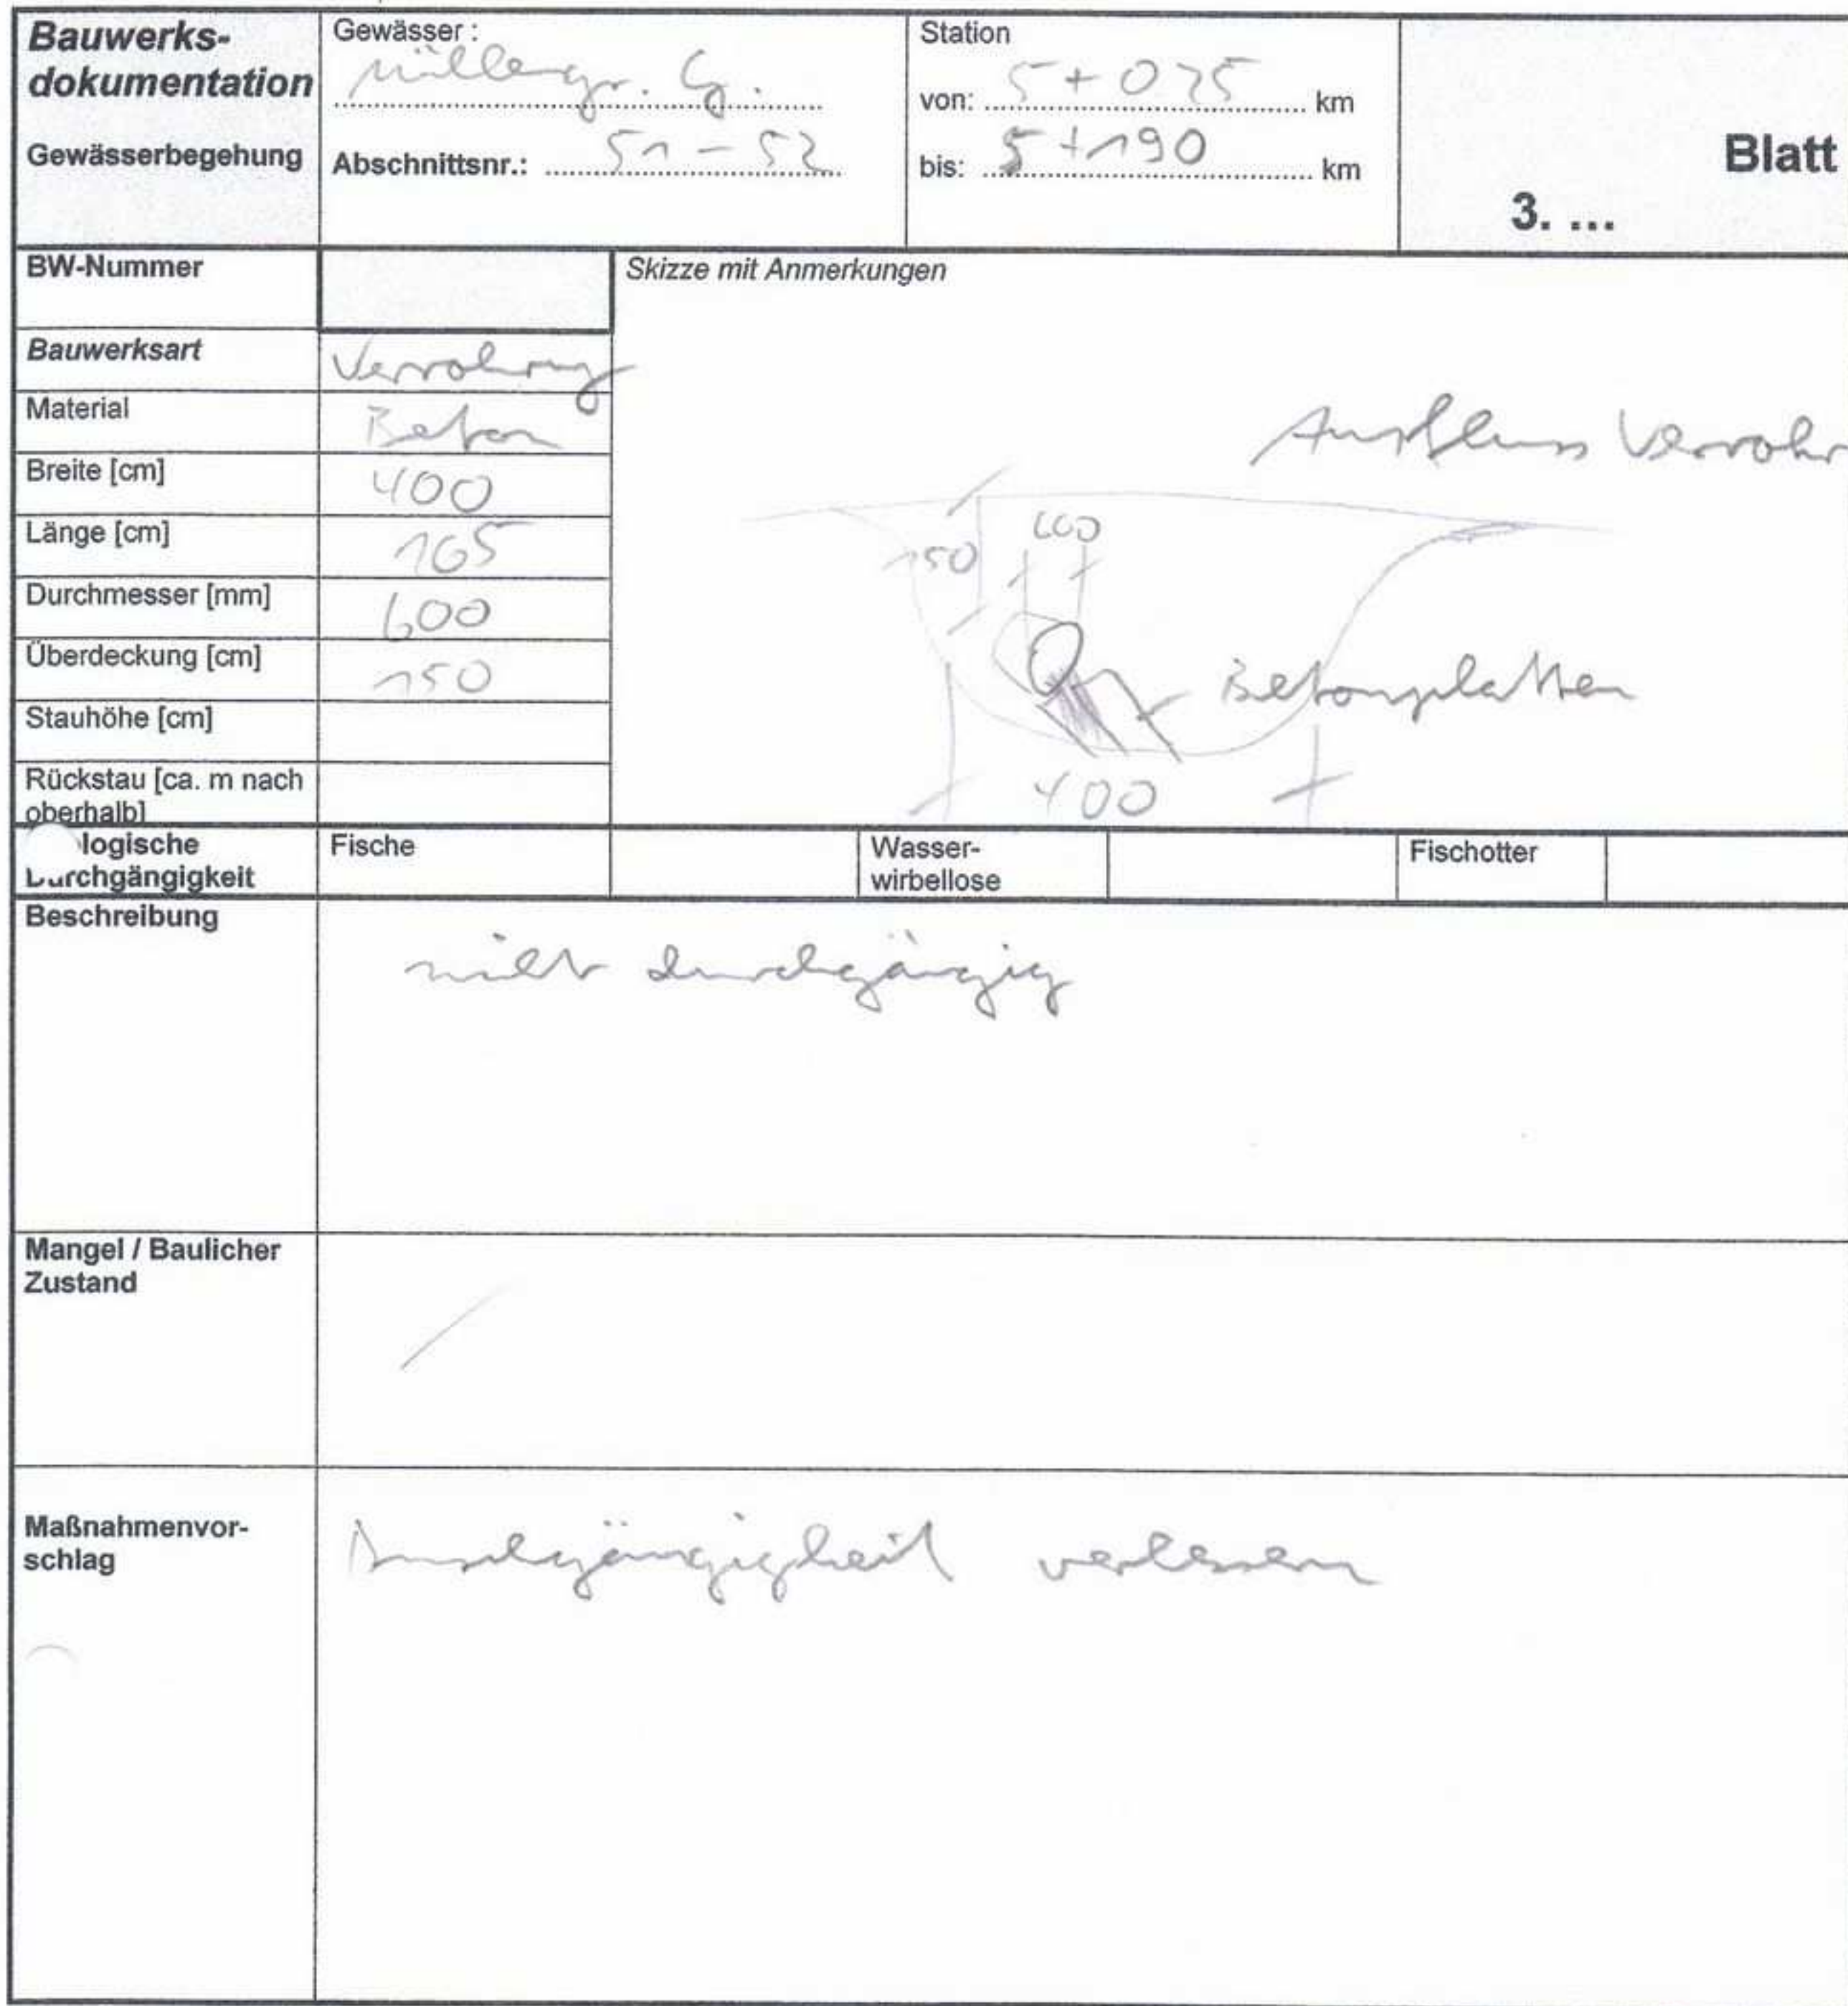 Bauwerks-
dokumentation
Gewässerbegehung
Gewässer :
Abschnittsnr.: 51 - 52
Station
von: 5+025 km
bis: 5+190 km
Blatt
3. ...
BW-Nummer
Skizze mit Anmerkungen
Bauwerksart Verrohrung
Material Beton
Breite [cm] 400
Länge [cm] 165
Durchmesser [mm] 600
Überdeckung [cm] 150
Stauhöhe [cm]
Rückstau [ca. m nach
oberhalb]
Ausfluss Verrohr
150
600
Betonplatten
400
logische
Durchgängigkeit
Fische
Wasser-
wirbellose
Fischotter
Beschreibung
nicht durchgängig
Mangel / Baulicher
Zustand
/
Maßnahmenvor-
schlag
Durchgängigkeit verbessern